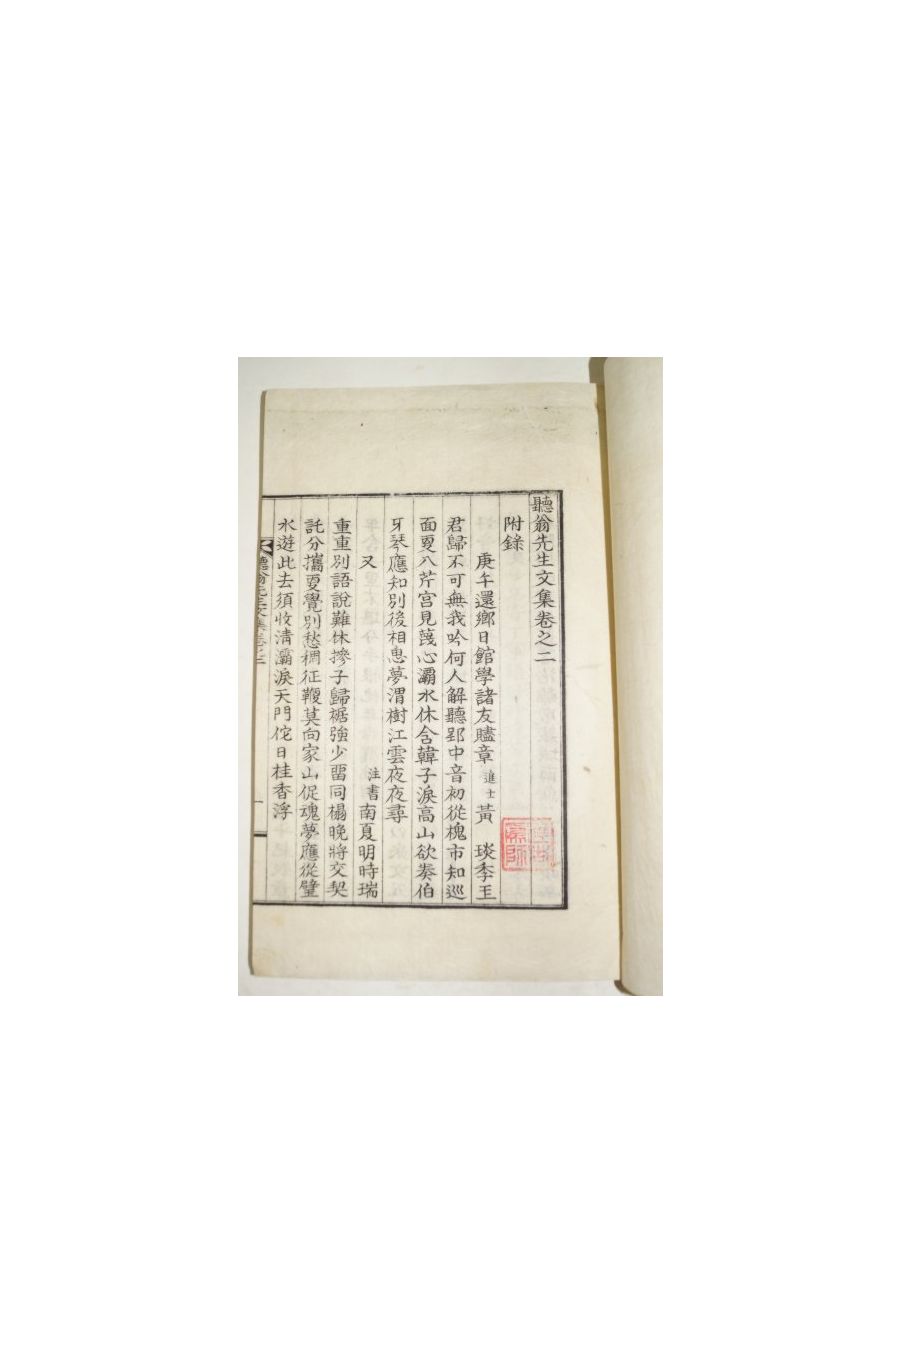 聽翁先生文集卷之二
附錄
庚午還鄉日館學諸友贐章 進士 黃 琰季玉
君歸不可無我吟何人解聽郢中音初從槐市知巡
面更入芹宮見淺心灞水休含韓子淚高山欲奏伯
牙琴應知別後相思夢渭樹江雲夜夜尋
又 注書 南夏明時瑞
重重別語說難休摻子歸裾強少留同榻晚將交契
託分攜更覺別愁稠征鞭莫向家山促魂夢應從璧
水遊此去須收清灞淚天門佗日桂香浮
聽翁先生文集卷之二
一